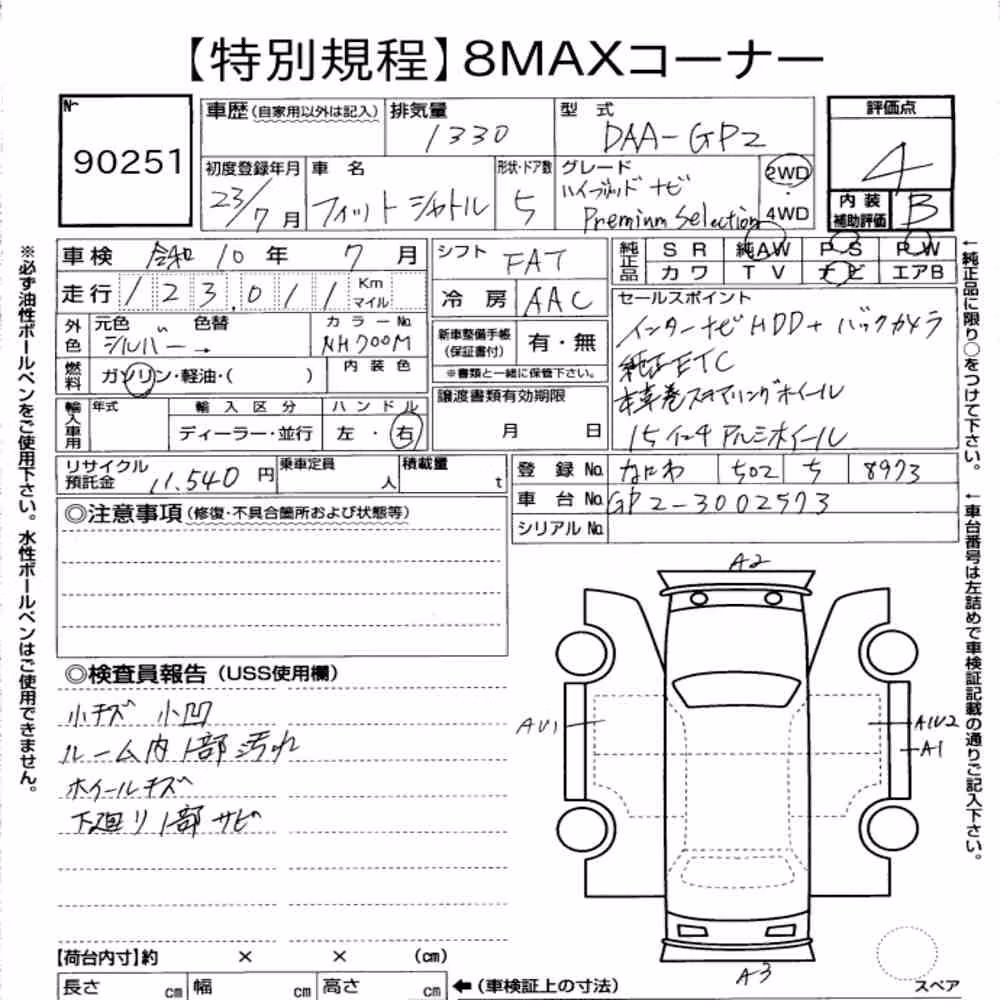 【特別規程】8MAXコーナー
No
90251
車歴(自家用以外は記入)
排気量
1330
型式
DAA-GP2
評価点
4
初度登録年月
23/7月
車名
フィットシャトル
形状・ドア数
5
グレード
ハイブリッド ナビ
Premium Selection
2WD
・
4WD
内装
補助評価
B
車検 令和 10年 7月
シフト FAT
純正品
SR 純AW P・S P・W
カワ TV ナビ エアB
走行 123,011 Km
マイル
冷房 AAC
セールスポイント
インターナビHDD+バックカメラ
純正ETC
本革巻ステアリングホイール
15インチアルミホイール
外色
元色 〃 色替
シルバー→
カラーNo.
NH700M
新車整備手帳
(保証書付)
有・無
※書類と一緒に保管下さい。
燃料
ガソリン・軽油・( )
内装色
輸入車用
年式
輸入区分
ディーラー・並行
ハンドル
左・右
譲渡書類有効期限
月 日
リサイクル
預託金
11,540円
乗車定員
人
積載量
t
登録No. なにわ 502 ち 8973
車台No. GP2-3002573
シリアルNo.
◎注意事項(修復・不具合箇所および状態等)
◎検査員報告(USS使用欄)
小キズ 小凹
ルーム内1部汚れ
ホイールキズ
下廻り1部サビ
A2
AU1
A1U2
A1
A3
スペア
【荷台内寸】約 × × (cm)
長さ cm 幅 cm 高さ cm
←(車検証上の寸法)
※必ず油性ボールペンをご使用下さい。水性ボールペンはご使用できません。
←純正品に限り○をつけて下さい。
←車台番号は左詰めで車検証記載の通りご記入下さい。